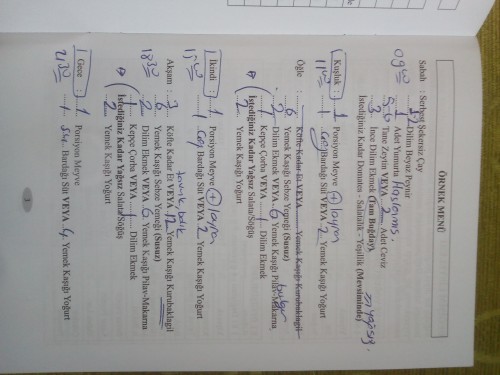 ÖRNEK MENÜ
Sabah : Serbest Şekersiz Çay
09 00 1/2 Dilim Beyaz Peynir
1 Adet Yumurta Haşlanmış.
5-6 Tane Zeytin VEYA 2 Adet Ceviz
3 İnce Dilim Ekmek (Tam Buğday),
İstediğiniz Kadar Domates - Salatalık - Yeşillik (Mevsiminde)
Kuşluk : 1 Porsiyon Meyve + 1 ayran
11 00 1 Çay Bardağı Süt VEYA 2 Yemek Kaşığı Yoğurt
Öğle : Köfte Kadar Et VEYA Yemek Kaşığı Kurubaklagil
6 Yemek Kaşığı Sebze Yemeği (Susuz)
2 Dilim Ekmek VEYA 6 Yemek Kaşığı Pilav-Makarna bulgur
1 Kepçe Çorba VEYA 1 Dilim Ekmek
İstediğiniz Kadar Yağsız Salata/Söğüş
2 Yemek Kaşığı Yoğurt
İkindi : 1 Porsiyon Meyve + 1 ayran
15 00 1 Çay Bardağı Süt VEYA 2 Yemek Kaşığı Yoğurt
Akşam : 3 Köfte Kadar Et VEYA 12 Yemek Kaşığı Kurubaklagil
18 30 6 Yemek Kaşığı Sebze Yemeği (Susuz)
2 Dilim Ekmek VEYA 6 Yemek Kaşığı Pilav-Makarna
1 Kepçe Çorba VEYA 1 Dilim Ekmek
İstediğiniz Kadar Yağsız Salata/Söğüş
2 Yemek Kaşığı Yoğurt
Gece : 1 Porsiyon Meyve
21 30 1 Su Bardağı Süt VEYA 4 Yemek Kaşığı Yoğurt
3